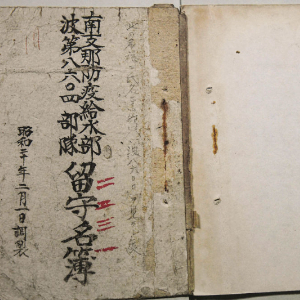 南支那防疫給水部
波第八六〇四部隊
留守名簿
二五三一
昭和二十年二月一日調製